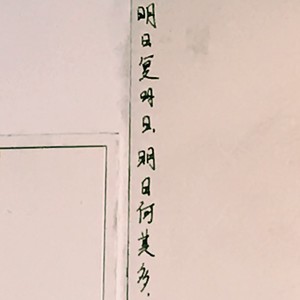 明日复明日，明日何其多，